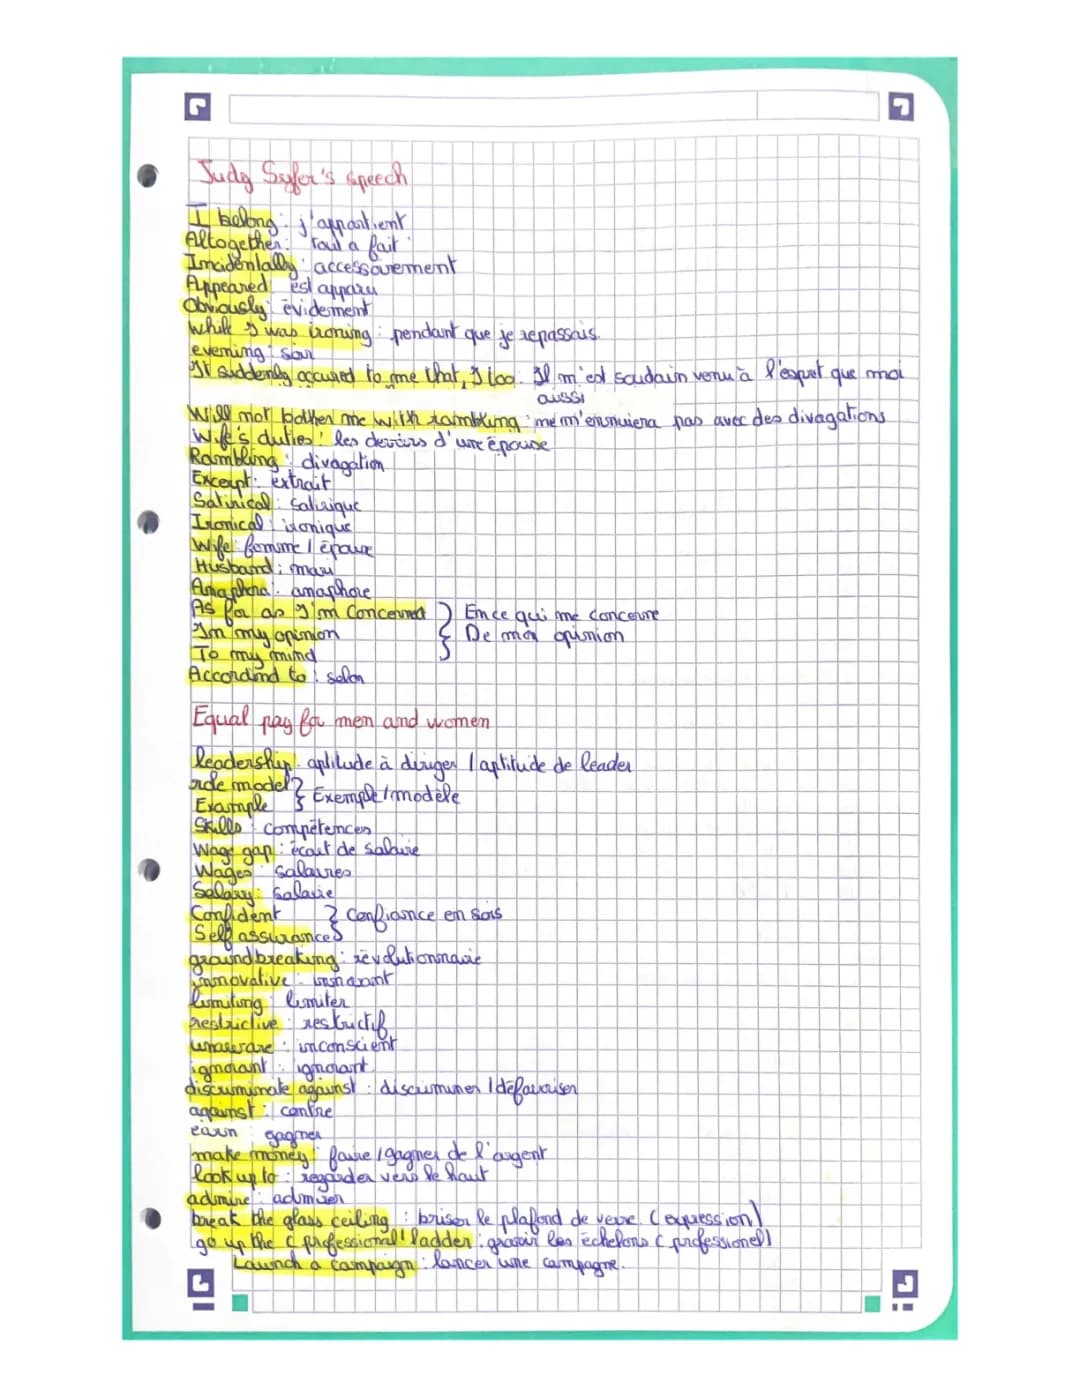 Judy Syfer's speech
I belong : j'appartient
Altogether : tout a fait
Incidentally : accessoirement
Appeared : est apparu
Obviously : évidement
While I was ironing : pendant que je repassais.
evening : soir
It suddenly occured to me that, I too : Il m'est soudain venu à l'esprit que moi
aussi
Will not bother me with rambling : me m'ennuiera pas avec des divagations
Wife's duties : les devoirs d'une épouse
Rambling : divagation
Excerpt : extrait
Satirical : satirique
Ironical : ironique
Wife : femme / épouse
Husband : mari
Anaphora : anaphore
As far as I'm Concerned } En ce qui me concerne
In my opinion } De mon opinion
To my mind
Accordind to : selon
Equal pay for men and women
leadership : aptitude à diriger / aptitude de leader
role model } Exemple / modèle
Example
Skills : compétences
Wage gap : écart de salaire
Wages : salaires
Salary : Salaire
Confident } Confiance en sois
Self assurance
groundbreaking : révolutionnaire
innovative : innovant
limiting : limiter
restrictive : restrictif
unaware : inconscient
ignorant : ignorant.
discriminate against : discriminer / défavoriser
against : contre
earn : gagner
make money : faire / gagner de l'argent
look up to : regarder vers le haut
admire : admirer
break the glass ceiling : briser le plafond de verre. (expression)
go up the (professional) ladder : gravir les échelons (professionel)
Launch a campaign : lancer une campagne.